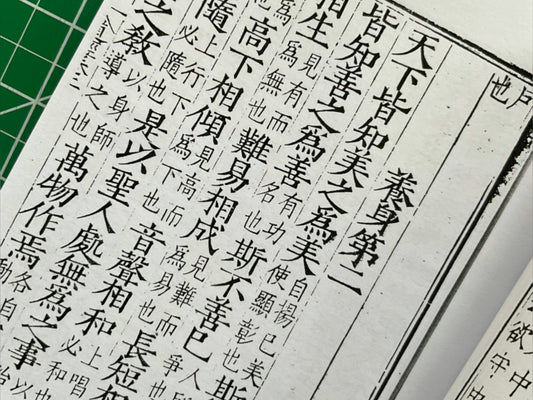 也 戶
養身第二
天下皆知美之爲美 自揚己美 使顯彰也 斯
皆知善之爲善 有功 名也 斯不善已 人
相生 見有而 爲無也 難易相成 見難而 爲易也 長短相
爲 也 高下相傾 見高而 爲下也 音聲相和 上唱 必和也
隨 上行下 必隨也 是以聖人處無爲之事 以
之教 以身師 導之也 萬物作焉 各自 動
中
欲守中